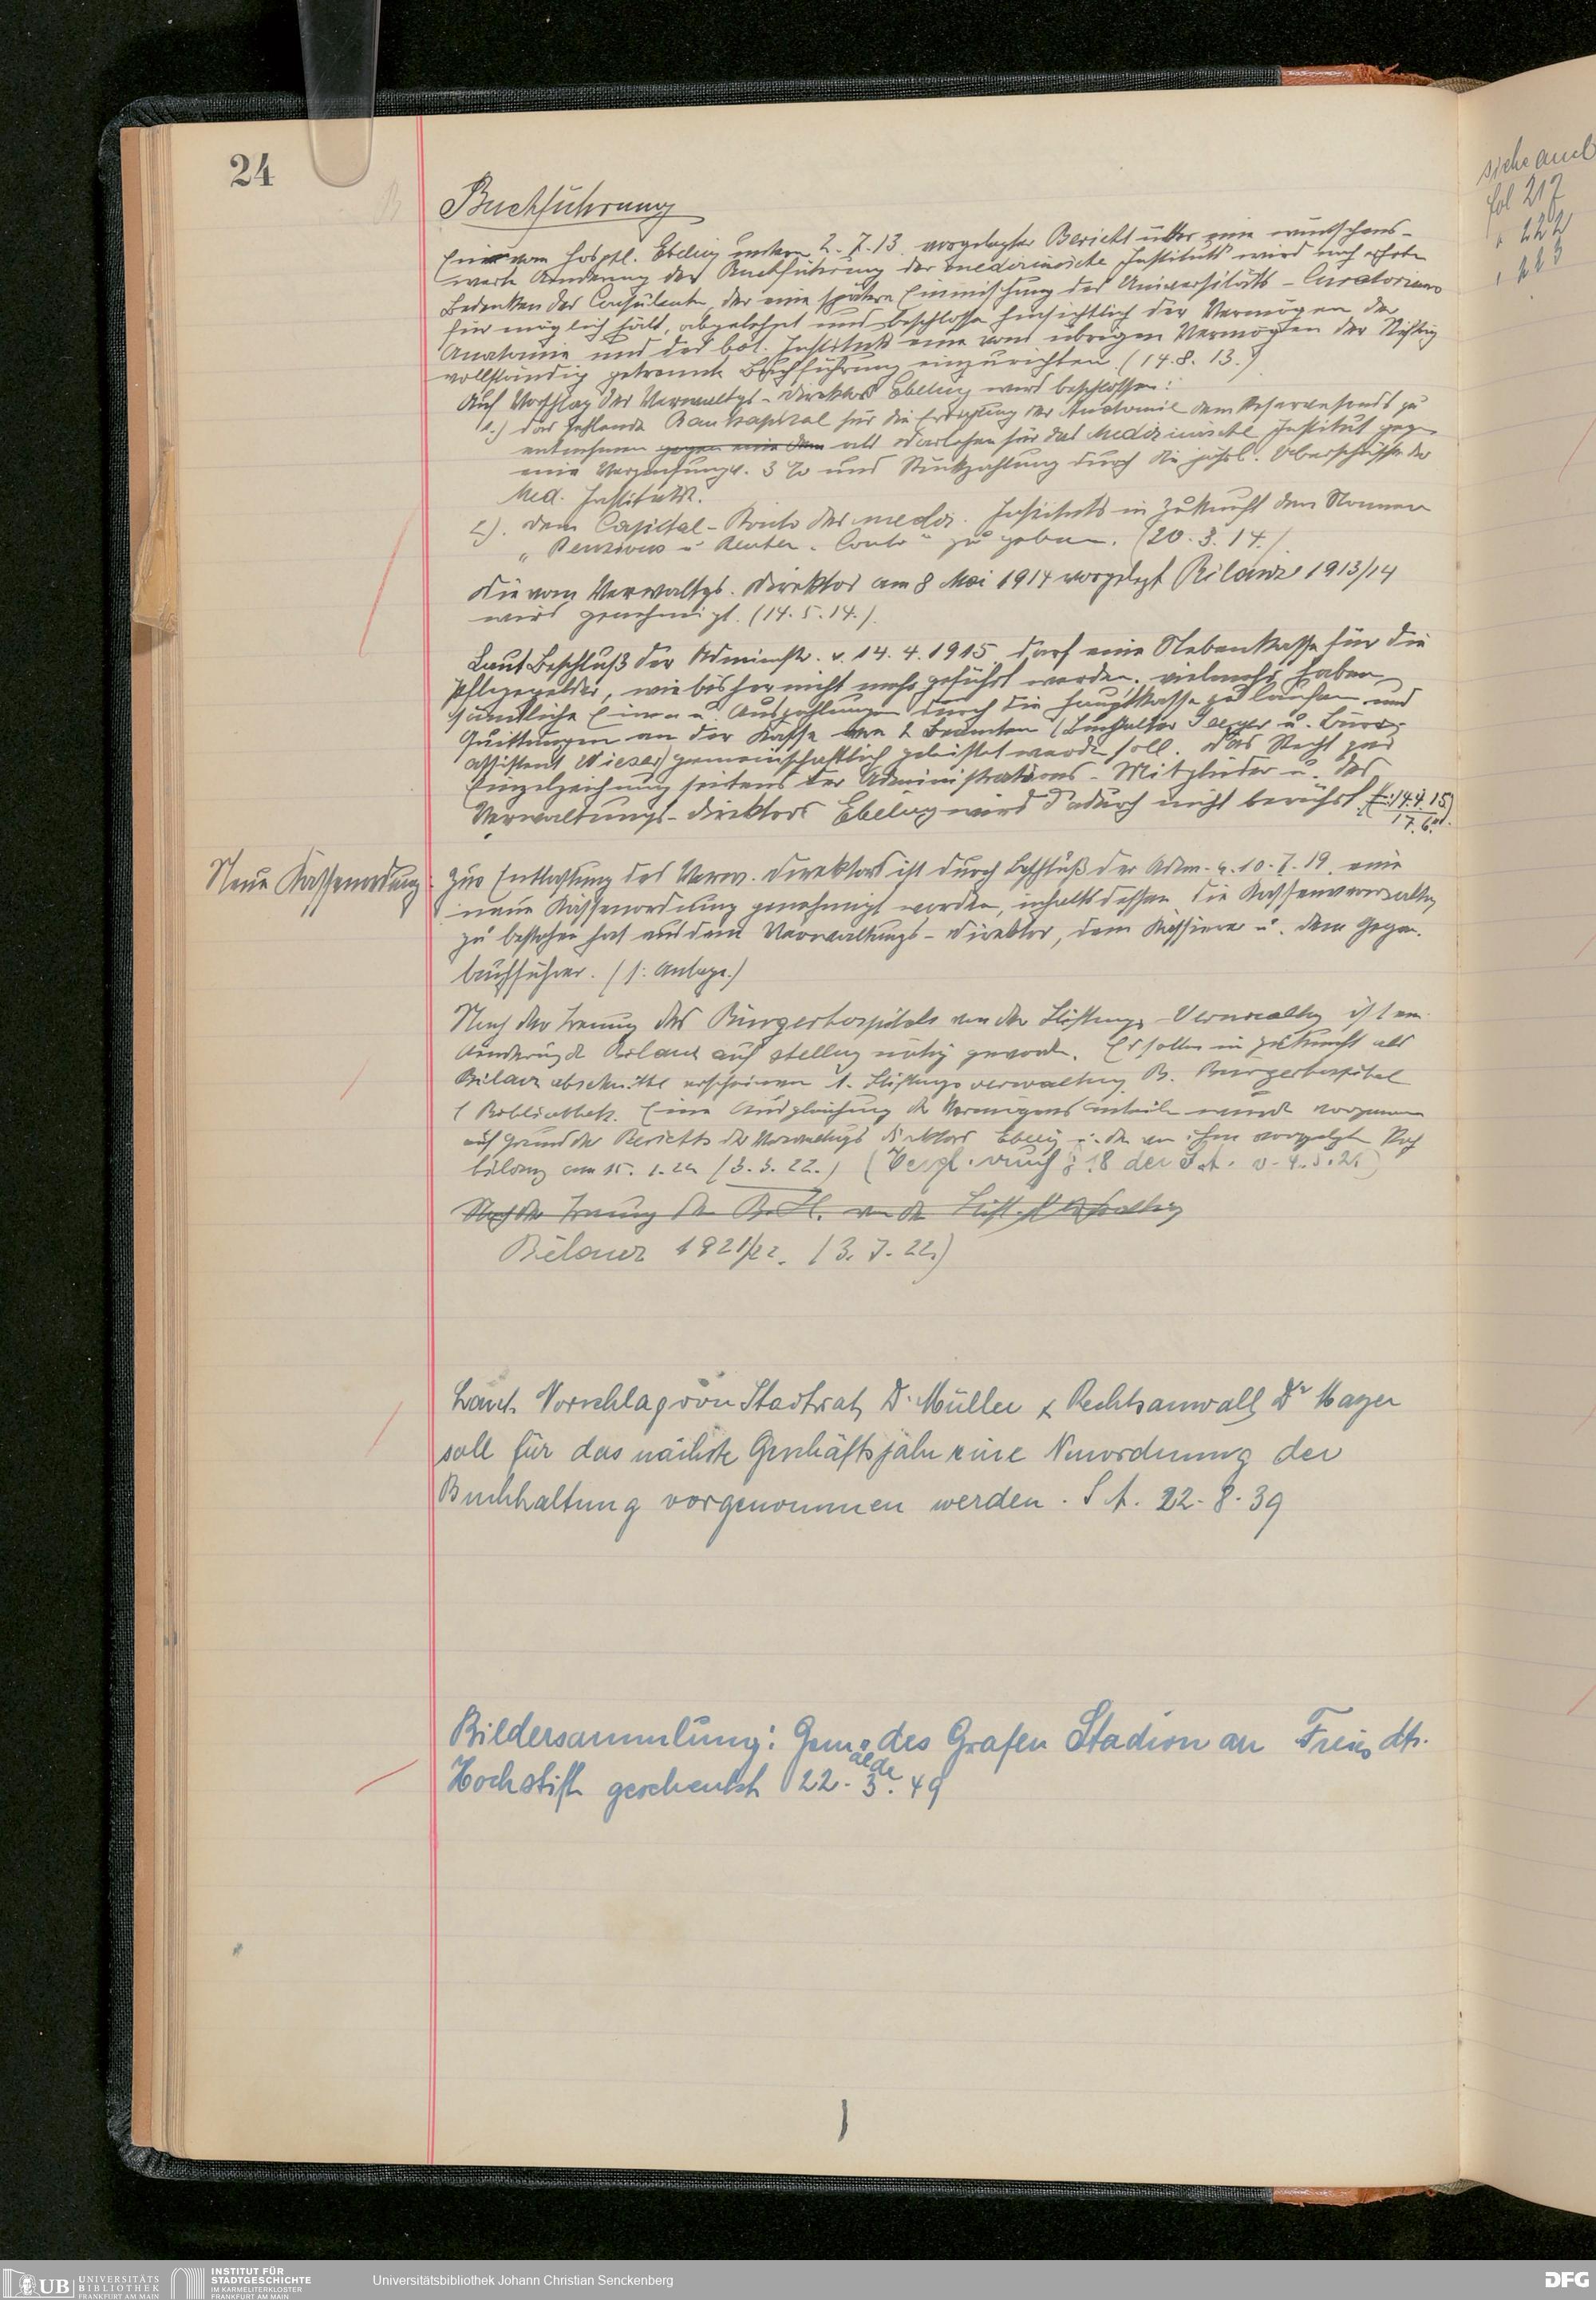 24
Buchführung
Eine vom Hosptl. Ebeling unterm 2. 7. 13. vorgelegter Bericht über eine wünschens-
werte Aenderung der Buchführung der medizinische Instituts wird nach
Bedenken des Consulenten, der eine spätere Einmischung des Universitäts-Curatoriums
für möglich hält, abgelehnt und beschlossen hinsichtlich der Vermögen der
Anatomie und des bot. Instituts eine vom übrigen Vermögen der Stiftung
vollständig getrennte Buchführung einzurichten. (14. 8. 13.)
Auf Vorschlag des Verwaltgs-Direktors Ebeling wird beschlossen:
1.) das fehlende Baukapital für die der Anatomie dem Reservefonds zu
entnehmen gegen eine dem als Darlehen für das Medizinische Institut gegen
eine Verzinsung v. 3 % und Rückzahlung durch die jährl. Ueberschüsse des
Med. Instituts.
2). dem Capital-Konto des mediz. Instituts in Zukunft den Namen
„Pensions u Renten-Conto" zu geben. (20. 3. 14.)
Die vom Verwaltgs. Direktor am 8 Mai 1914 vorgelegt Bilanz 1913/14
wird genehmigt. (14. 5. 14.)
Laut Beschluß der Adminstr. v. 14. 4. 1915 darf eine Nebenkasse für die
Pflegegelder, wie bisher nicht mehr geführt werden. vielmehr haben
sämtliche Einn- u. Auszahlungen durch die Hauptkasse zu laufen und
Quittungen an der Kasse von 2 Beamten (Buchhalter Seeger u. Büro-
assistent Wieser) gemeinschaftlich geleistet werden soll. Das Recht zur
Einzelzeichnung seitens der Administrations-Mitglieder u. des
Verwaltungs-direktors Ebeling wird dadurch nicht berührt. (14.4.15)
17. 6.
Neue Kassenordnung
Zur Entlastung des Verw. Direktors ist durch Beschluß der Adm. v. 10. 7. 19. eine
neue Kassenordnung genehmigt worden, inhaltsdessen die Kassenverwaltg
zu bestehen hat aus dem Verwaltungs-Direktor, dem Kassierer u. dem Gegen-
buchführer. (s. Anlage.)
Nach der Trennung des Bürgerhospitals von der Stiftungs-Verwaltg ist eine
Änderung der Bilanzaufstellung nötig geworden. Es sollen in Zukunft als
Bilanzabschnitte erscheinen A. Stiftungsverwaltung B. Bürgerhospital
C Bibliothek. Eine Ausgleichung der Vermögensanteile wurde vorgenommen
auf Grund der Berichts des Verwaltungs direktors Ebeling u. der von ihm vorgelegten
bilanz am 15. 1. 22 (3. 3. 22.) (Vergl. auch § 18 der S.A. v. 4. 3. 21)
Nach der Trennung des B. H. von der Stift.
Bilanz 1921/22. (3. 7. 22.)
Laut Vorschlag von Stadtrat Dr. Müller & Rechtsanwalt Dr Mayer
soll für das nächste Geschäftsjahr eine Neuordnung der
Buchhaltung vorgenommen werden. S A. 22. 8. 39
Bildersammlung: Gemälde des Grafen Stadion an Freies dt.
Hochstift geschenkt 22. 3. 49
siehe auch
fol 217
" 222
" 223
UB UNIVERSITÄTS BIBLIOTHEK FRANKFURT AM MAIN
INSTITUT FÜR STADTGESCHICHTE IM KARMELITERKLOSTER FRANKFURT AM MAIN
Universitätsbibliothek Johann Christian Senckenberg
DFG